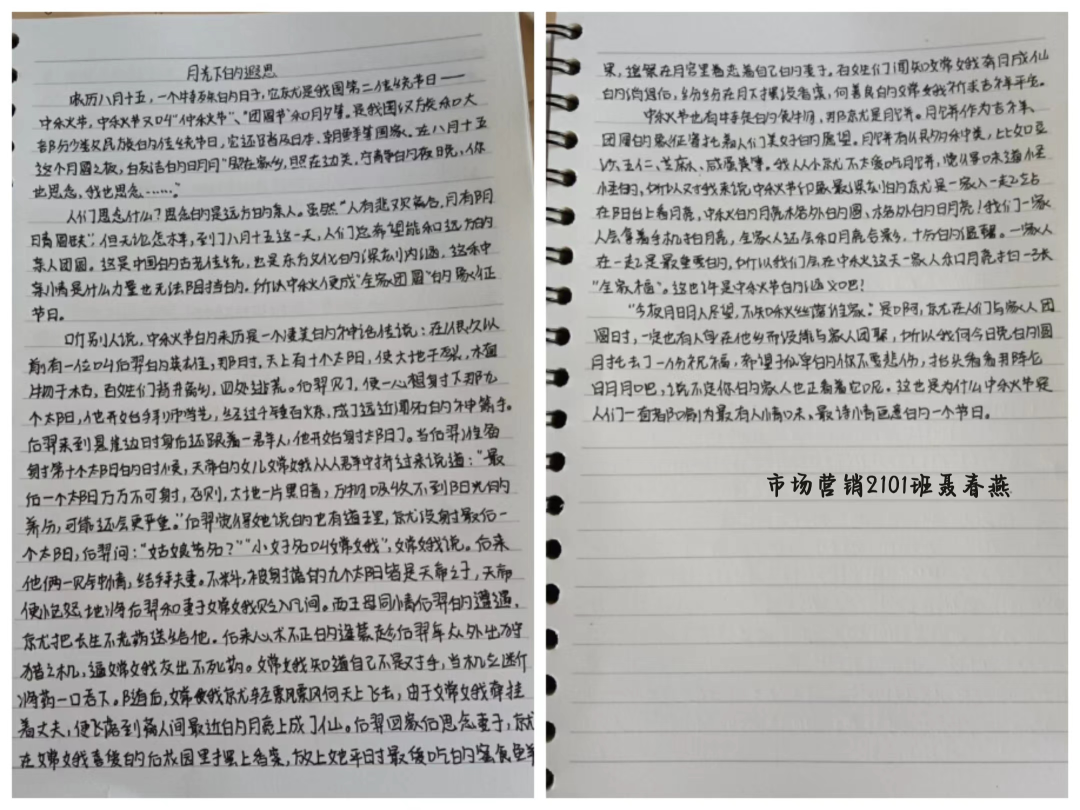 月光下的遐思
农历八月十五，一个特殊的日子，它就是我国第二传统节日——
中秋节，中秋节又叫“仲秋节”、“团圆节”和月夕等。是我国汉族和大
部分少数民族的传统节日，它还普及日本、朝鲜等国家。在八月十五
这个月圆之夜，白皎洁的明月“照在家乡，照在边关、宁静的夜晚，你
也思念，我也思念……”
人们思念什么？思念的是远方的亲人。虽然“人有悲欢离合，月有阴
晴圆缺”，但无论怎样，到了八月十五这一天，人们总希望能和远方的
亲人团圆。这是中国的古老传统，也是东方文化的深刻内涵，这种
亲情是什么力量也无法阻挡的。所以中秋便成“全家团圆”的象征
节日。
听别人说，中秋节的来历是一个凄美的神话传说：在很久以
前有一位叫后羿的英雄，那时，天上有十个太阳，使大地干裂，木直
物干木古，百姓们背井离乡，四处逃荒。后羿见了，便一心想射下那九
个太阳，他开始拜师学艺，经过千锤百炼，成了远近闻名的神箭手。
后羿来到悬崖边时身后还跟着一君羊人，他开始射太阳了。当后羿准备
射第十个太阳的时候，天帝的女儿嫦娥从人群中挤过来说道：“最
后一个太阳万万不可射，否则，大地一片黑暗，万物吸收不到阳光的
养份，可能还会更严重。”后羿觉得她说的也有道理，就没射最后一
个太阳，后羿问：“姑娘芳名？”“小女子名叫嫦娥”，嫦娥说。后来
他俩一见钟情，结拜夫妻。不料，被射落的九个太阳皆是天帝之子，天帝
便恼怒地将后羿和妻子嫦娥贬入凡间。而王母同情后羿的遭遇，
就把长生不老药送给他。后来心术不正的逢蒙趁后羿率众外出狩
猎之机，逼嫦娥交出不死药。嫦娥知道自己不是对手，当机立断
将药一口吞下。随后，嫦娥就轻飘飘向天上飞去，由于嫦娥牵挂
着丈夫，便飞落到离人间最近的月亮上成了仙。后羿回家后思念妻子，就
在嫦娥喜爱的后花园里摆上香案，放上她平日时最爱吃的蜜食鲜
果，遥祭在月宫里眷恋着自己的妻子。百姓们闻知嫦娥奔月成仙
的消息后，纷纷在月下摆设香案，向善良的嫦娥祈求吉祥平安。
中秋节也有特定的食物，那就是月饼。月饼作为吉祥、
团圆的象征寄托着人们美好的愿望。月饼有很多种类，比如豆
沙、五仁、芝麻、咸蛋黄等。我从小就不太爱吃月饼，觉得味道怪
怪的，所以对我来说中秋节印象最深刻的就是一家人一起站
在阳台上看月亮，中秋的月亮格外的圆、格外的明亮！我们一家
人会拿着手机拍月亮，全家人还会和月亮合影，十分的温馨。一家人
在一起是最重要的，所以我们会在中秋这天一家人和月亮拍一张
“全家福”。这也许是中秋节的涵义吧！
“今夜月明人尽望，不知秋思落谁家。”是啊，就在人们与家人团
圆时，一定也有人身在他乡而没能与家人团聚，所以我向今日晚的圆
月托去了一份祝福，希望孤单的你不要悲伤，抬头看看那轮
明月吧，说不定你的家人也正看着它呢。这也是为什么中秋节是
人们一直者阝觉得最有人情味、最诗情画意的一个节日。
市场营销2101班聂春燕